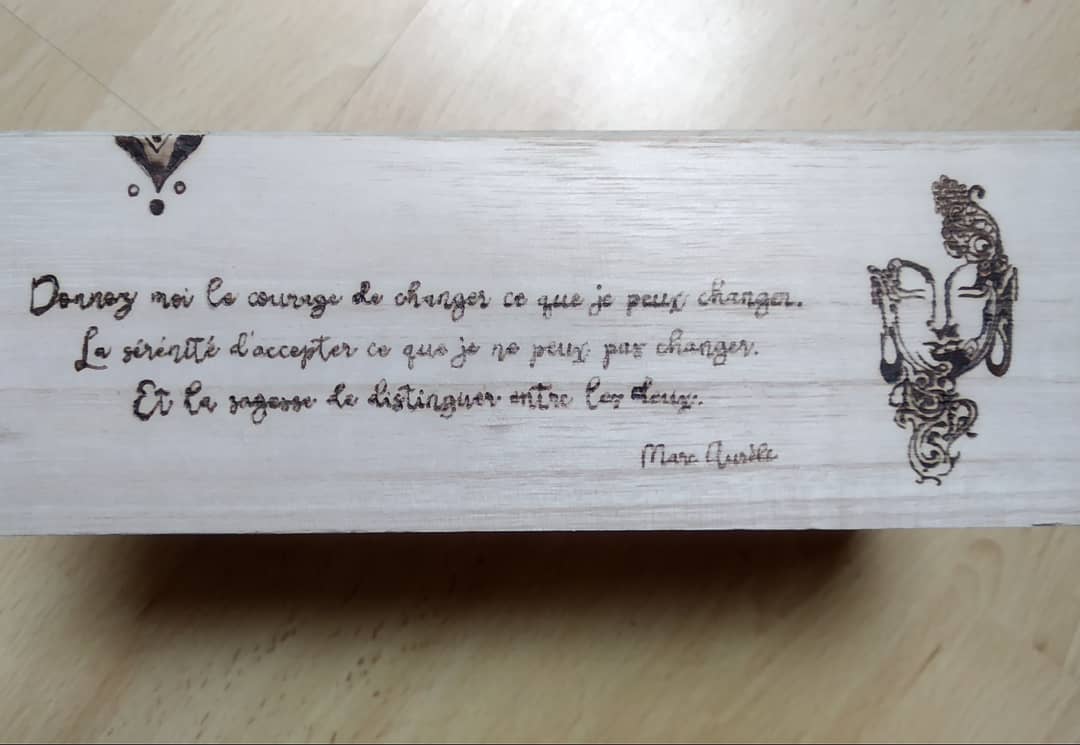 Donnez moi le courage de changer ce que je peux changer.
La sérénité d'accepter ce que je ne peux pas changer.
Et la sagesse de distinguer entre les deux.
Marc Aurèle